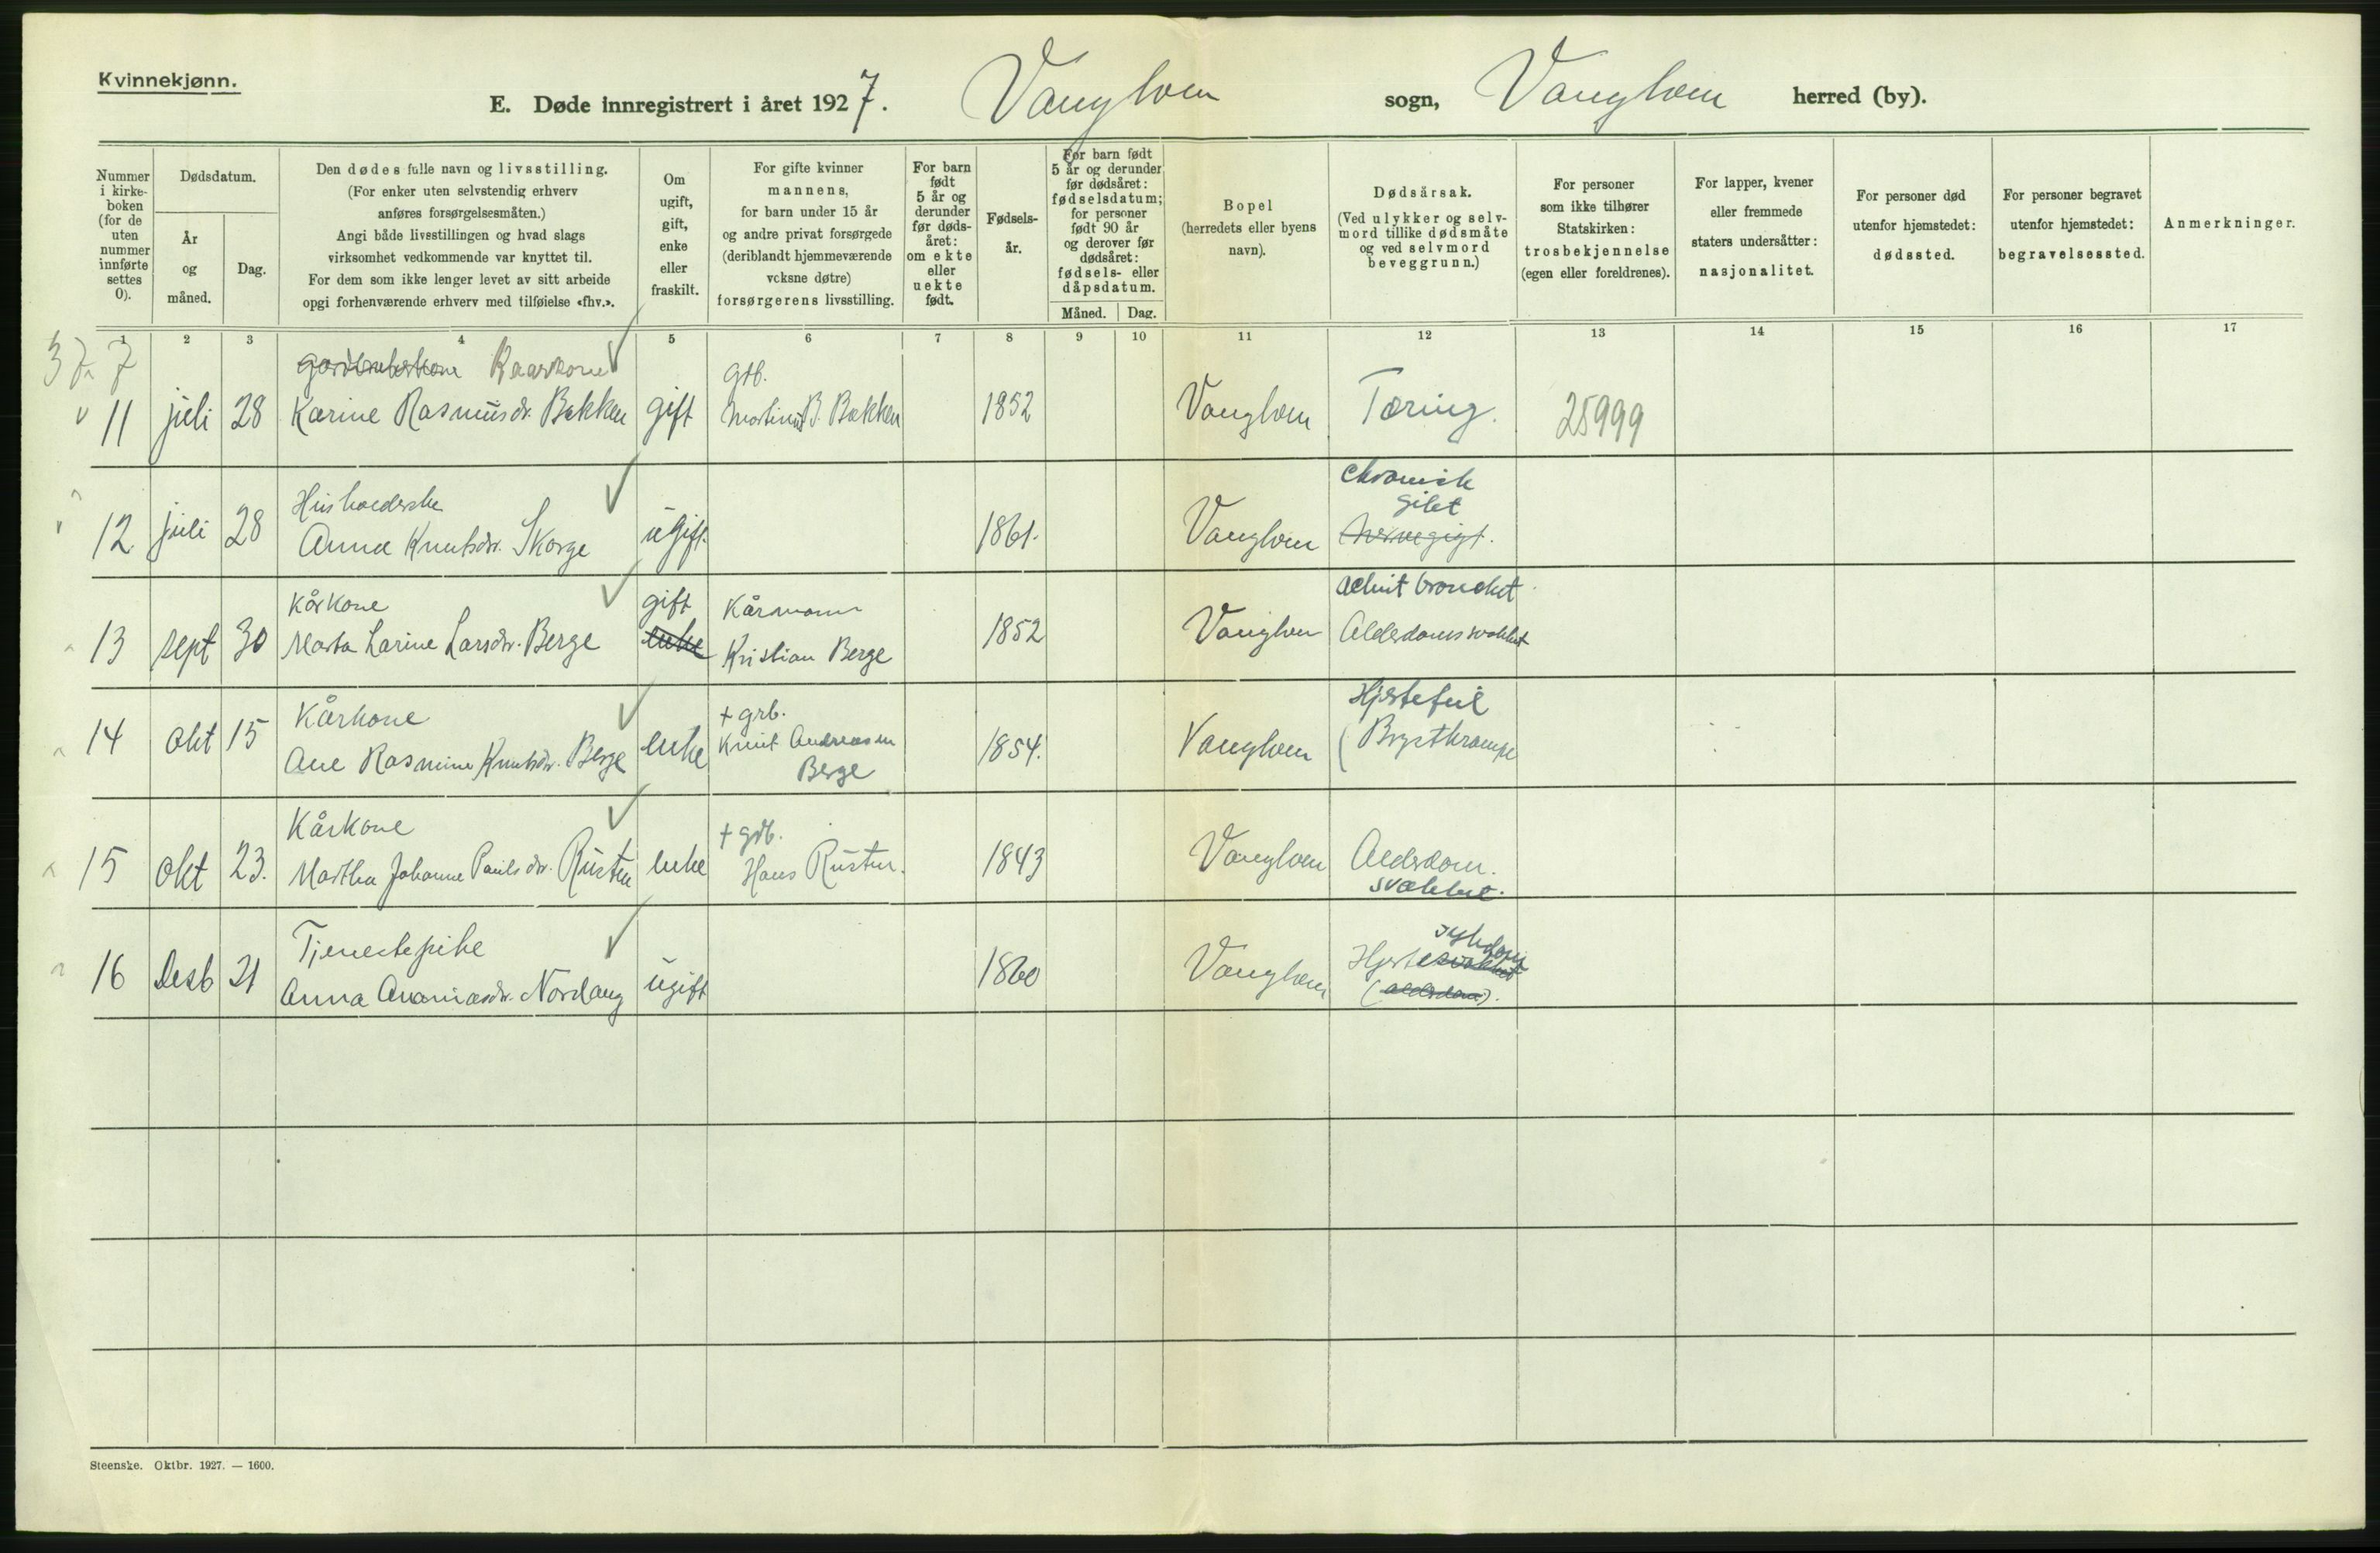 Kvinnekjønn.
E. Døde innregistrert i året 1927. Vanylven sogn, Vanylven herred (by).
Nummer
i kirke-
boken
(for de
uten
nummer
innførte
settes
0).
Dødsdatum.
År
og
måned.
Dag.
Den dødes fulle navn og livsstilling.
(For enker uten selvstendig erhverv
anføres forsørgelsesmåten.)
Angi både livsstillingen og hvad slags
virksomhet vedkommende var knyttet til.
For dem som ikke lenger levet av sitt arbeide
opgi forhenværende erhverv med tilføielse «fhv.».
Om
ugift,
gift,
enke
eller
fraskilt.
For gifte kvinner
mannens,
for barn under 15 år
og andre privat forsørgede
(deriblandt hjemmeværende
vcksne døtre)
forsørgerens livsstilling.
For barn
født
5 år og
derunder
før døds-
året:
om ekte
eller
uekte
født.
Fødsels-
år.
For barn født
5 år og derunder
før dødsåret:
fødselsdatum;
for personer
født 90 år
og derover før
dødsåret:
fødsels- eller
dåpsdatum.
Måned. Dag.
Bopel
(herredets eller byens
navn).
Dødsårsak.
(Ved ulykker og selv-
mord tillike dødsmåte
og ved selvmord
beveggrunn.)
For personer
som ikke tilhører
Statskirken:
trosbekjennelse
(egen eller foreldrenes).
For lapper, kvener
eller fremmede
staters undersåtter:
nasjonalitet.
For personer død
utenfor hjemstedet:
dødssted.
For personer begravet
utenfor hjemstedet:
begravelsessted.
Anmerkninger.
1 2 3 4 5 6 7 8 9 10 11 12 13 14 15 16 17
37 7
Kaarkone
grb.
11 juli 28 Karine Rasmusdr. Bakken gift Martinus B. Bakken 1852 Vanylven Tæring. 25999
Husholderske
chronisk
gikt
12. juli 28 Anna Knutsdr. Skorge ugift. 1861. Vanylven Nervegigt.
Kårkone
gift
Kårmann
achut bronchit.
13 sept 30 Marta Larine Larsdr. Berge enke Kristian Berge 1852 Vanylven Alderdomssvakhet
Kårkone
+ grb.
Hjertefeil
14 okt 15 Ane Rasmine Knutsdr. Berge enke Knut Andreassen 1854. Vanylven (Brystkrampe
Berge
Kårkone
+ grb.
15 okt 23. Martha Johanne Paulsdr. Rusten enke Hans Rusten. 1843 Vanylven Alderdom.
svækkelse.
Tjenestepike
sykdom
16 Desb 21 Anna Ananiasdr. Nordang ugift 1860 Vanylven Hjertesvakhet
(alderdom).
Steenske. Oktbr. 1927. — 1600.